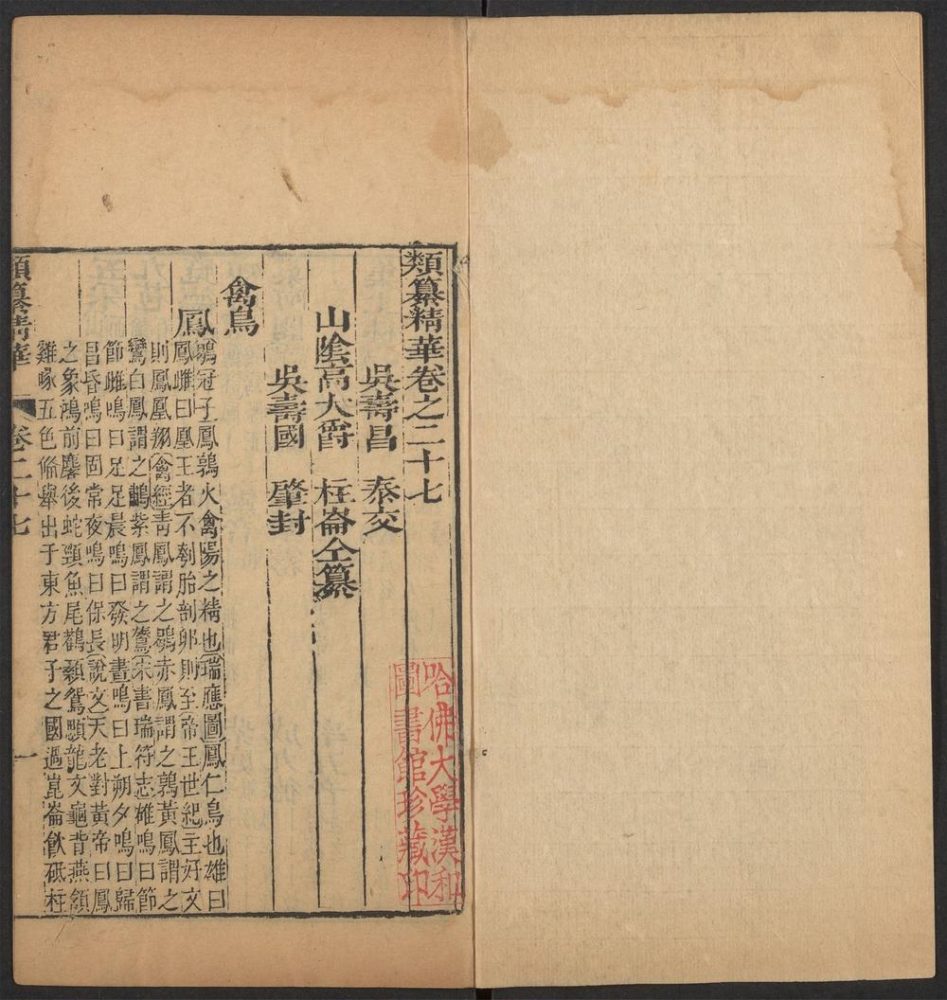 類纂精華卷之二十七
吳壽昌 泰交
山陰高大爵 柱崙仝纂
吳壽國 肇封
禽鳥
鳳
鶡冠子鳳鶉火禽陽之精也瑞應圖鳳仁鳥也雄曰
鳳雌曰凰王者不刳胎剖卵則至帝王世紀主好文
則鳳凰翔禽經青鳳謂之鶡赤鳳謂之鶉黃鳳謂之
鸞白鳳謂之鷫紫鳳謂之鷟宋書瑞符志雄鳴曰節
節雌鳴曰足足晨鳴曰發明晝鳴曰上朔夕鳴曰歸
昌昏鳴曰固常夜鳴曰保長說文天老對黃帝曰鳳
之象鴻前麐後蛇頸魚尾鸛顙鴛顋龍文龜背燕頷
雞啄五色俻舉出于東方君子之國過崑崙飲砥柱
類纂精華 卷二十七 一
哈佛大學漢和
圖書館珍藏印